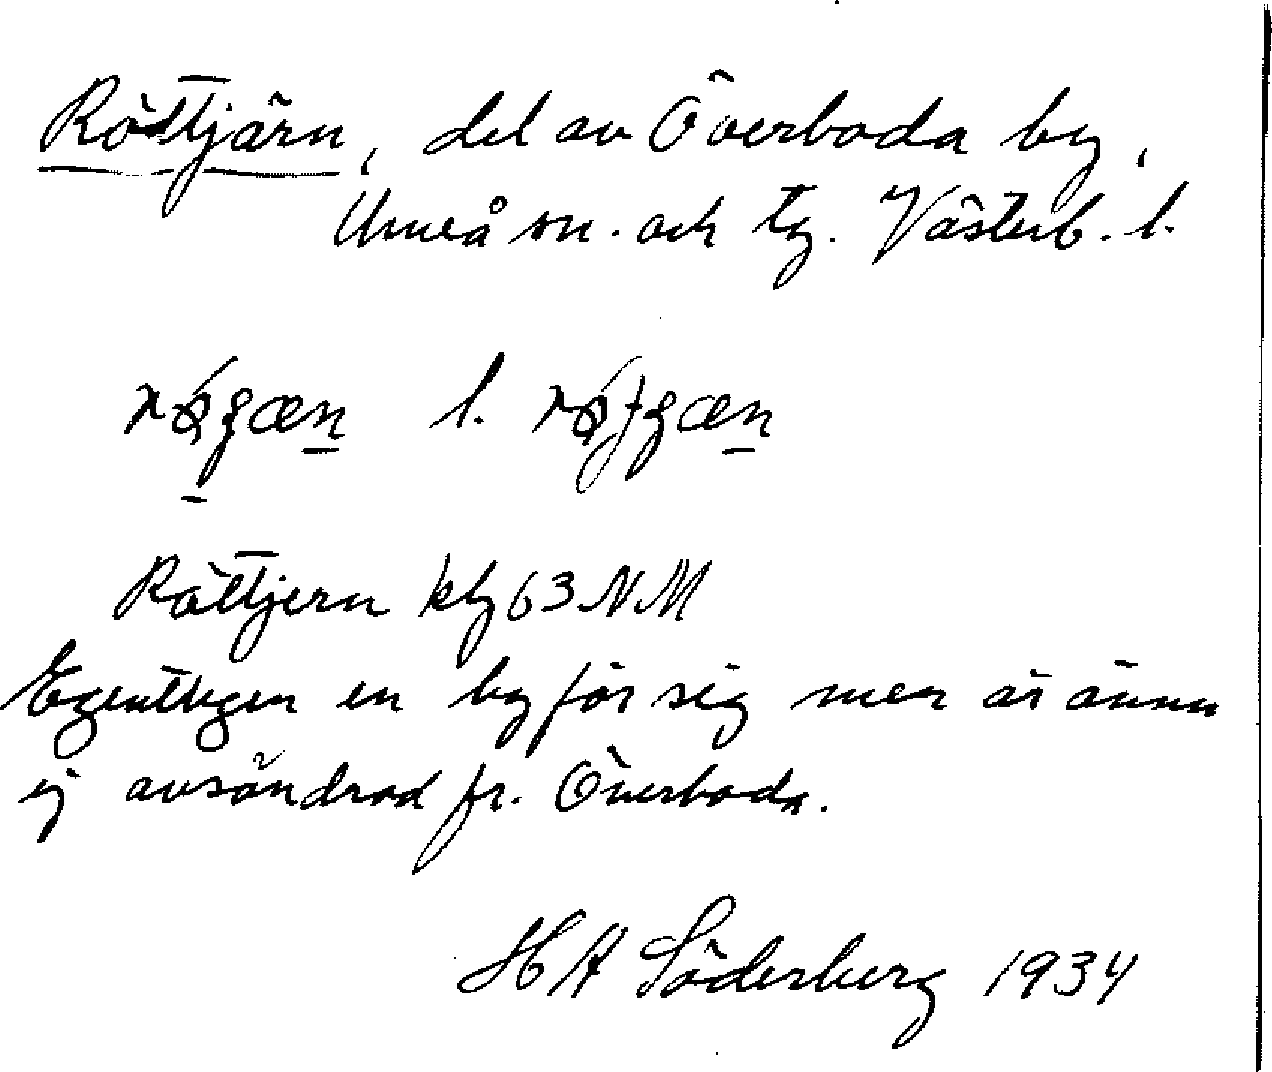 Röttjärn, del av Överboda by,
Umeå sn. och tg. Västerb. l.
l.
Röttjern kbg 63 NM
Egentligen en by för sig men är ännu
ej avsöndrad fr. Överboda.
H A Söderberg 1934